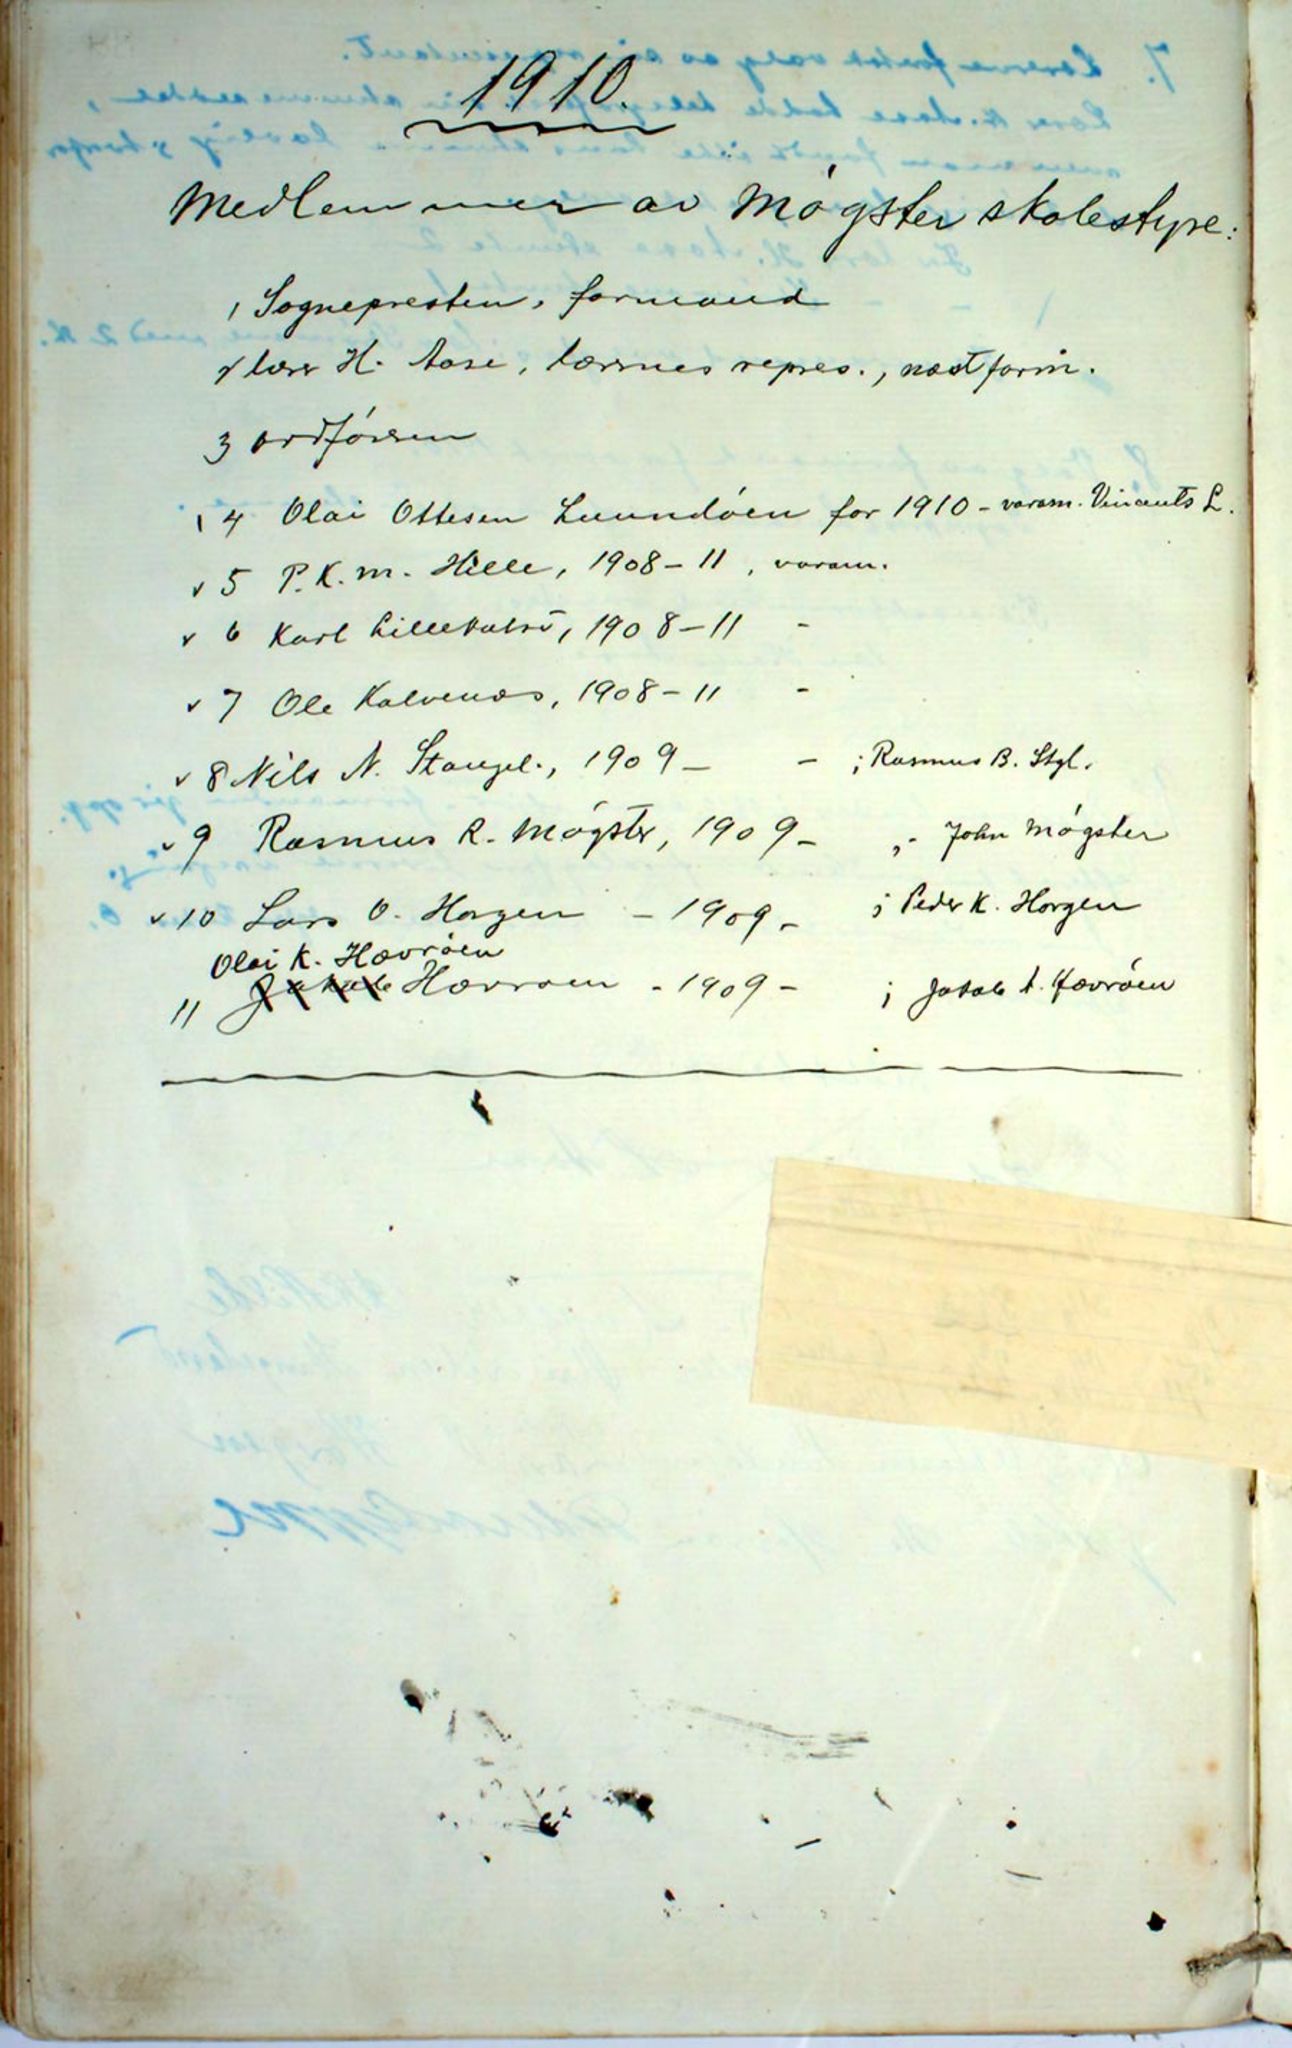 1910.
Medlemmer av Møgster skolestyre:
1 Sognepresten, formand
2 lærer H. Aase, lærernes repres., næstform.
3 Ordføreren
4 Olai Ottesen Lunnøen for 1910 - varam. Vincents L.
v 5 P. K. M. Hille, 1908-11, varam.
v 6 Karl Lillekalsø, 1908-11 -
v 7 Ole Kalvenæs, 1908-11 -
v 8 Nils N. Stangel., 1909- - ; Rasmus B. Stgl.
v 9 Rasmus R. Møgster, 1909- „- John Møgster
v 10 Lars O. Horgen - 1909- ; Peder K. Horgen
Olai K. Hævrøen
11 Jakob Hævrøen - 1909- ; Jakob A. Hævrøen